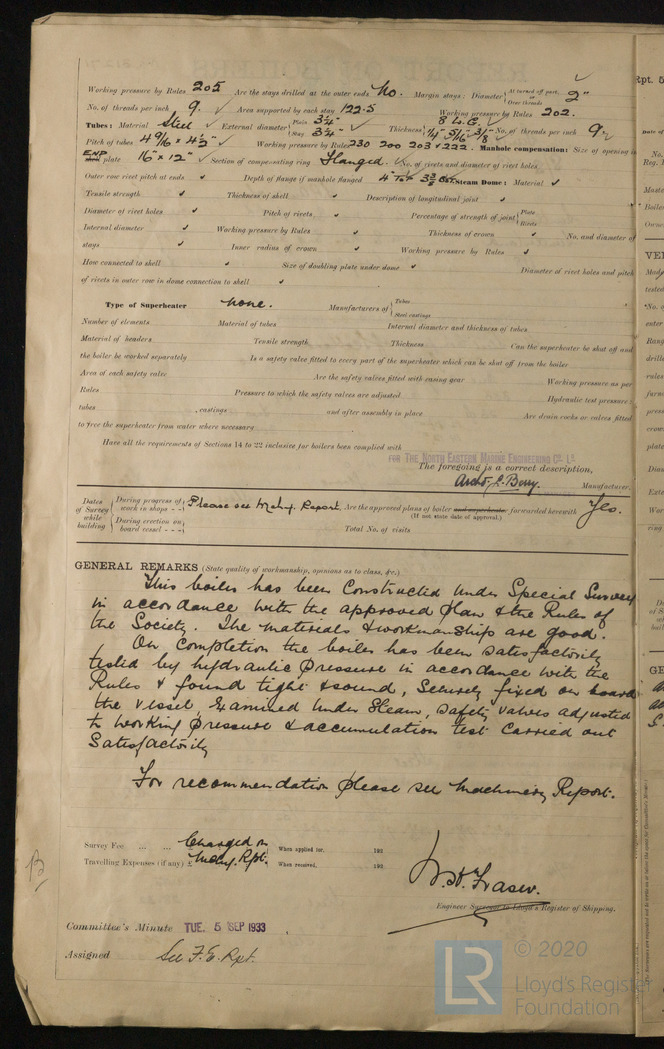 Working pressure by Rules 205 Are the stays drilled at the outer ends No. Margin stays: Diameter { At turned off part, or Over threads 2"
No. of threads per inch 9. Area supported by each stay 122.5 Working pressure by Rules 202.
Tubes: Material Steel External diameter { Plain 3 1/4" Stay 3 1/4" Thickness { 8 L.S.G. 1/4" 5/16" 3/8" No. of threads per inch 9.
Pitch of tubes 4 9/16 x 4 1/2" Working pressure by Rules 230 200 203 & 222. Manhole compensation: Size of opening in
END plate 16" x 12" Section of compensating ring Flanged. No. of rivets and diameter of rivet holes
Outer row rivet pitch at ends Depth of flange if manhole flanged 4" 3 3/8 Steam Dome: Material
Tensile strength Thickness of shell Description of longitudinal joint
Diameter of rivet holes Pitch of rivets Percentage of strength of joint { Plate Rivets
Internal diameter Working pressure by Rules Thickness of crown No. and diameter of
stays Inner radius of crown Working pressure by Rules
How connected to shell Size of doubling plate under dome Diameter of rivet holes and pitch
of rivets in outer row in dome connection to shell
Type of Superheater None. Manufacturers of { Tubes Steel castings
Number of elements Material of tubes Internal diameter and thickness of tubes
Material of headers Tensile strength Thickness Can the superheater be shut off and
the boiler be worked separately Is a safety valve fitted to every part of the superheater which can be shut off from the boiler
Area of each safety valve Are the safety valves fitted with easing gear Working pressure as per
Rules Pressure to which the safety valves are adjusted Hydraulic test pressure:
tubes , castings and after assembly in place Are drain cocks or valves fitted
to free the superheater from water where necessary
Have all the requirements of Sections 14 to 22 inclusive for boilers been complied with
FOR THE NORTH EASTERN MARINE ENGINEERING CO. LD.
The foregoing is a correct description,
Archd. L. Berry. Manufacturer.
Dates of Survey while building { During progress of work in shops - - During erection on board vessel - - - } Please see Mchy. Report. Are the approved plans of boiler and superheater forwarded herewith Yes.
(If not state date of approval.)
Total No. of visits
GENERAL REMARKS (State quality of workmanship, opinions as to class, &c.)
This boiler has been Constructed under Special Survey
in accordance with the approved plan & the Rules of
the Society. The materials & workmanship are good.
On Completion the boiler has been satisfactorily
tested by hydraulic pressure in accordance with the
Rules & found tight & sound, Securely fixed on board
the vessel, Examined under Steam, safety valves adjusted
to working pressure & accumulation test Carried out
Satisfactorily
For recommendation please see Machinery Report.
Survey Fee ... ... Charged on When applied for, 192
Travelling Expenses (if any) £ Mchy. Rpt. When received, 192
W.H. Fraser.
Engineer Surveyor to Lloyd's Register of Shipping.
Committee's Minute TUE. 5 SEP 1933
Assigned See F.E. Rpt.
LR © 2020
Lloyd's Register
Foundation